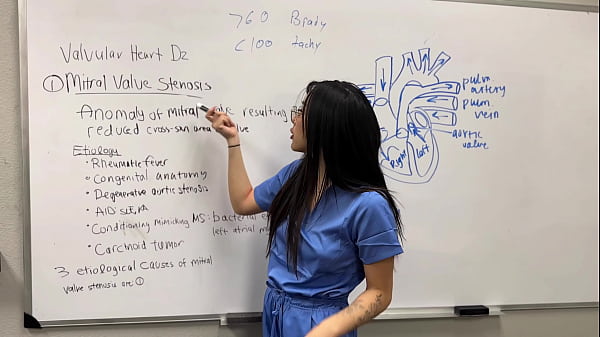 >60 Brady
<100 tachy
Valvular Heart Dz
① Mitral Valve Stenosis
Anomaly of mitral resulting
reduced cross-san area
Etiology
• Rheumatic fever
• Congenital anatomy
• Degenerative aortic stenosis
• AID
• Conditioning mimicking MS: bacterial
left atrial
• Carcinoid tumor
3 etiological causes of mitral
valve stenosis are: ①
pulm.
artery
pulm.
vein
aortic
valve
Right
left